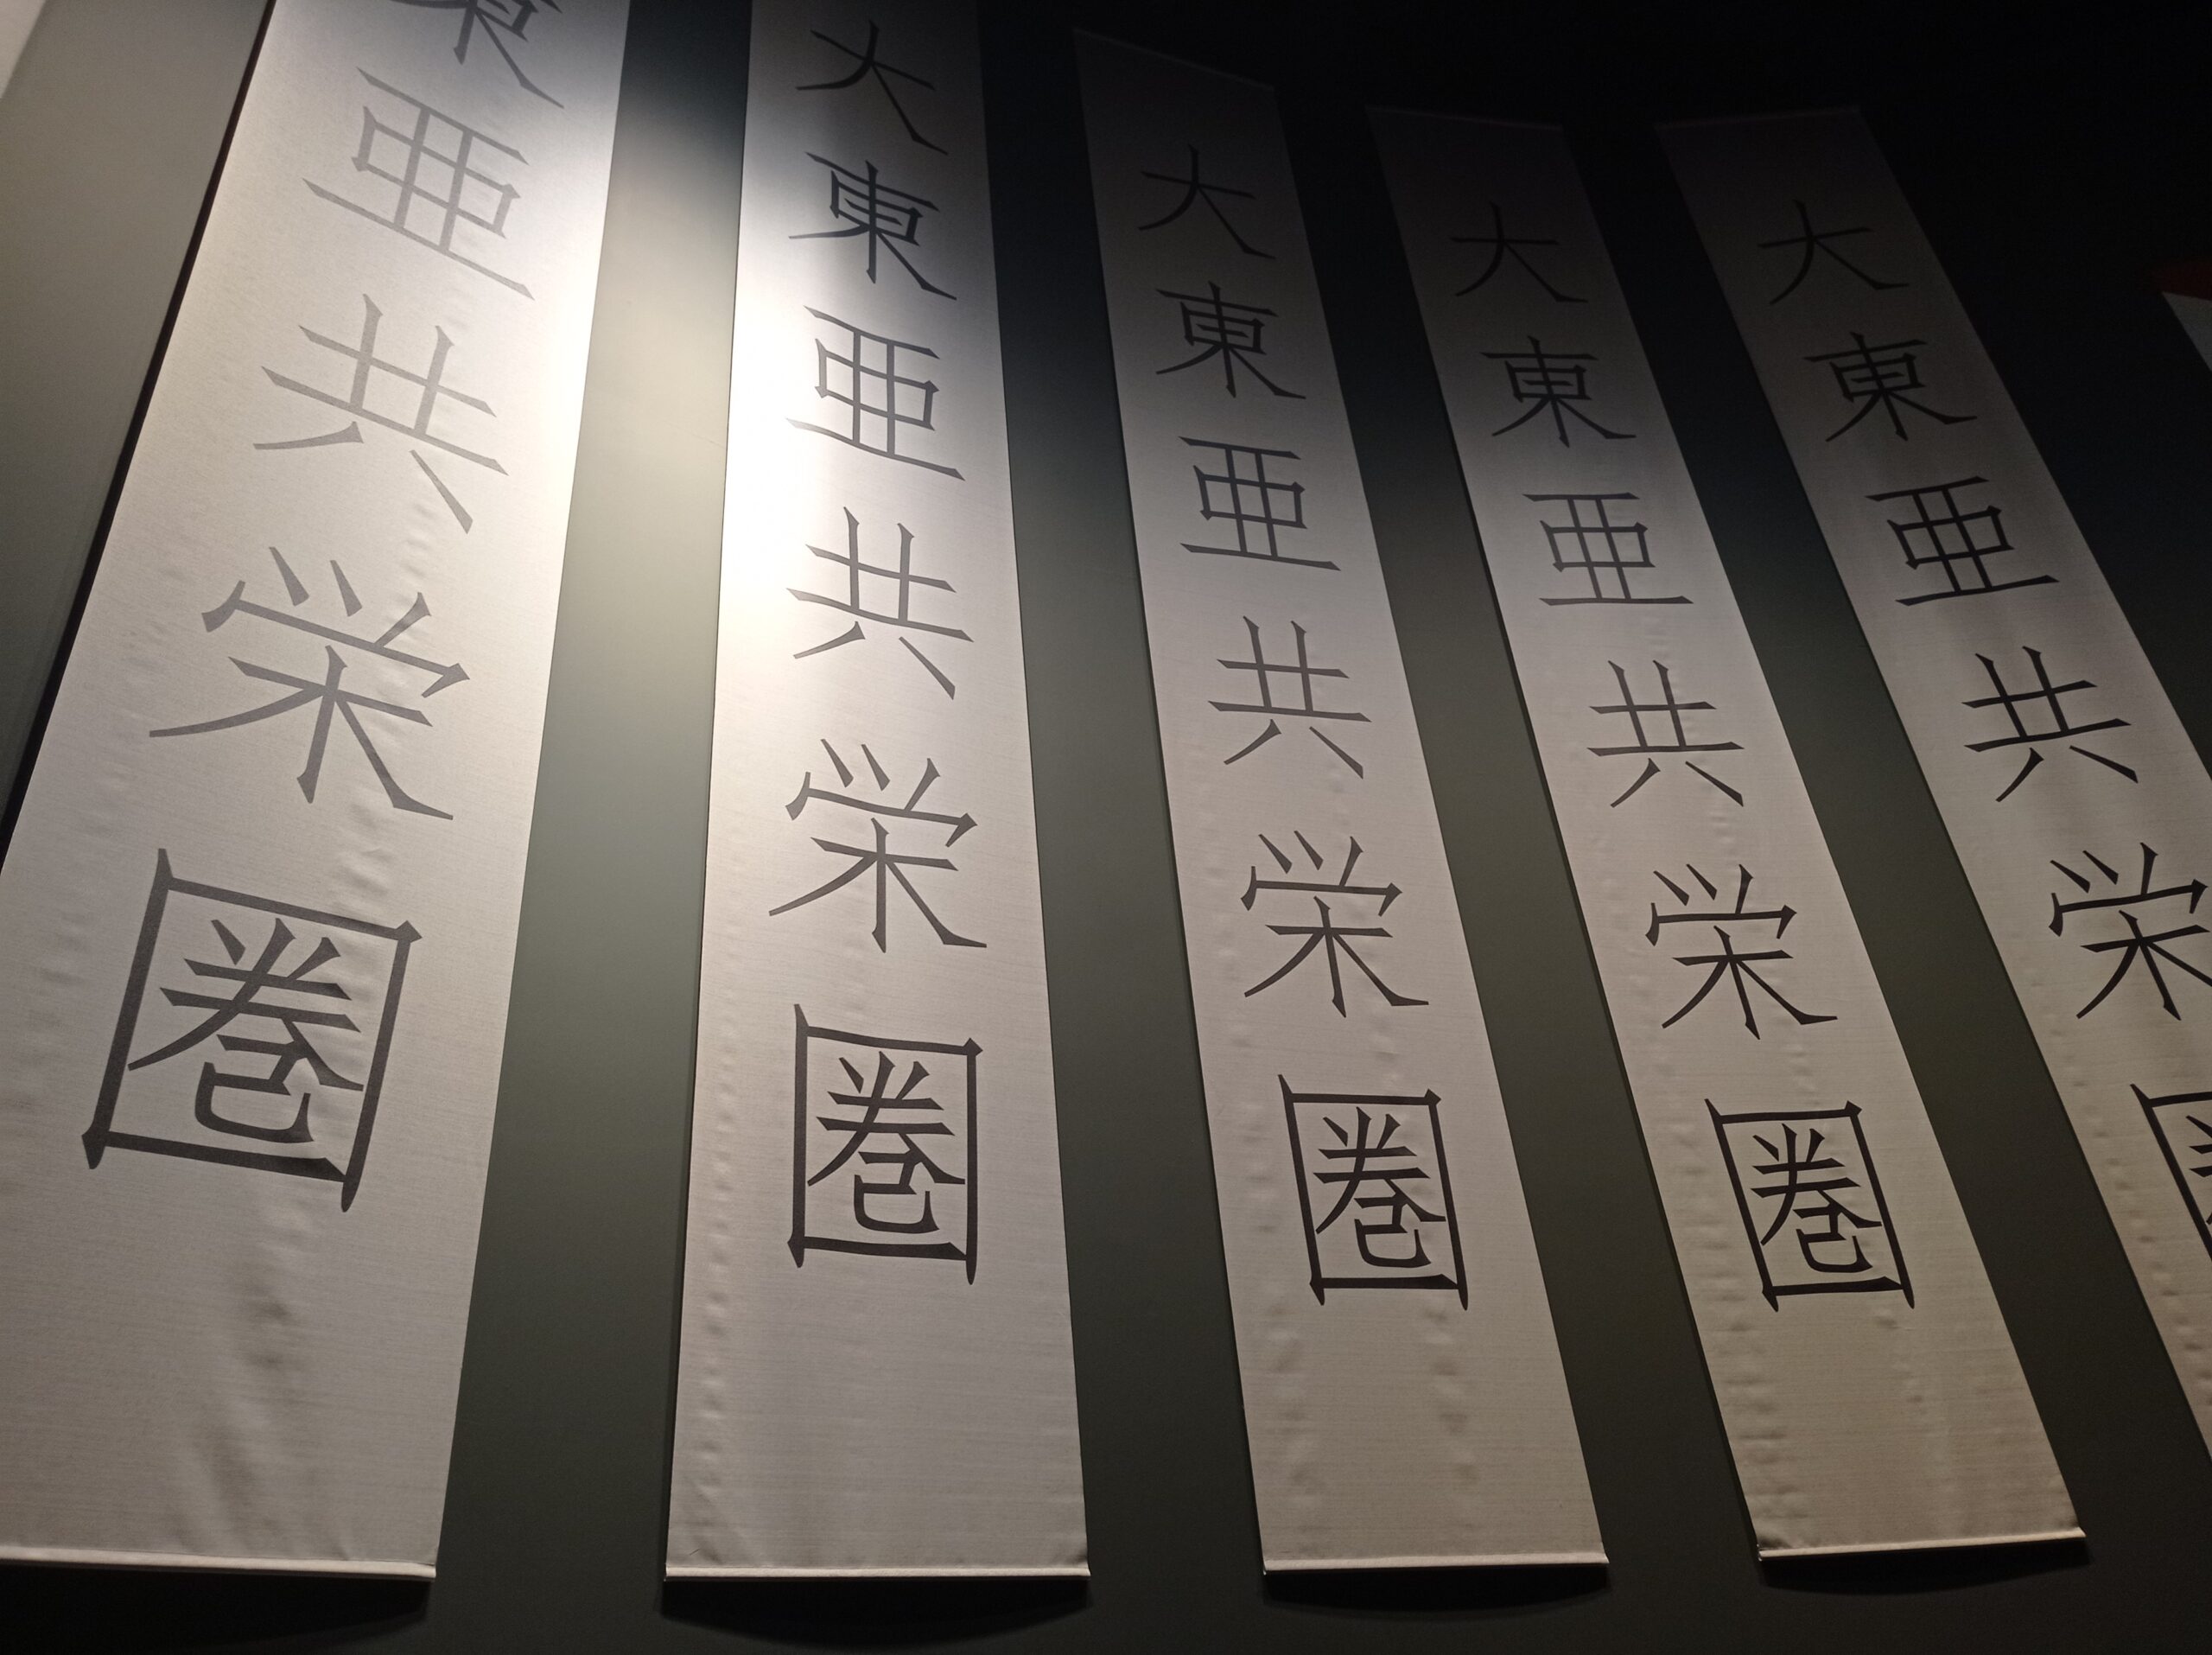 大東亜共栄
大東亜共栄圏
大東亜共栄圏
大東亜共栄圏
東亜共栄圏